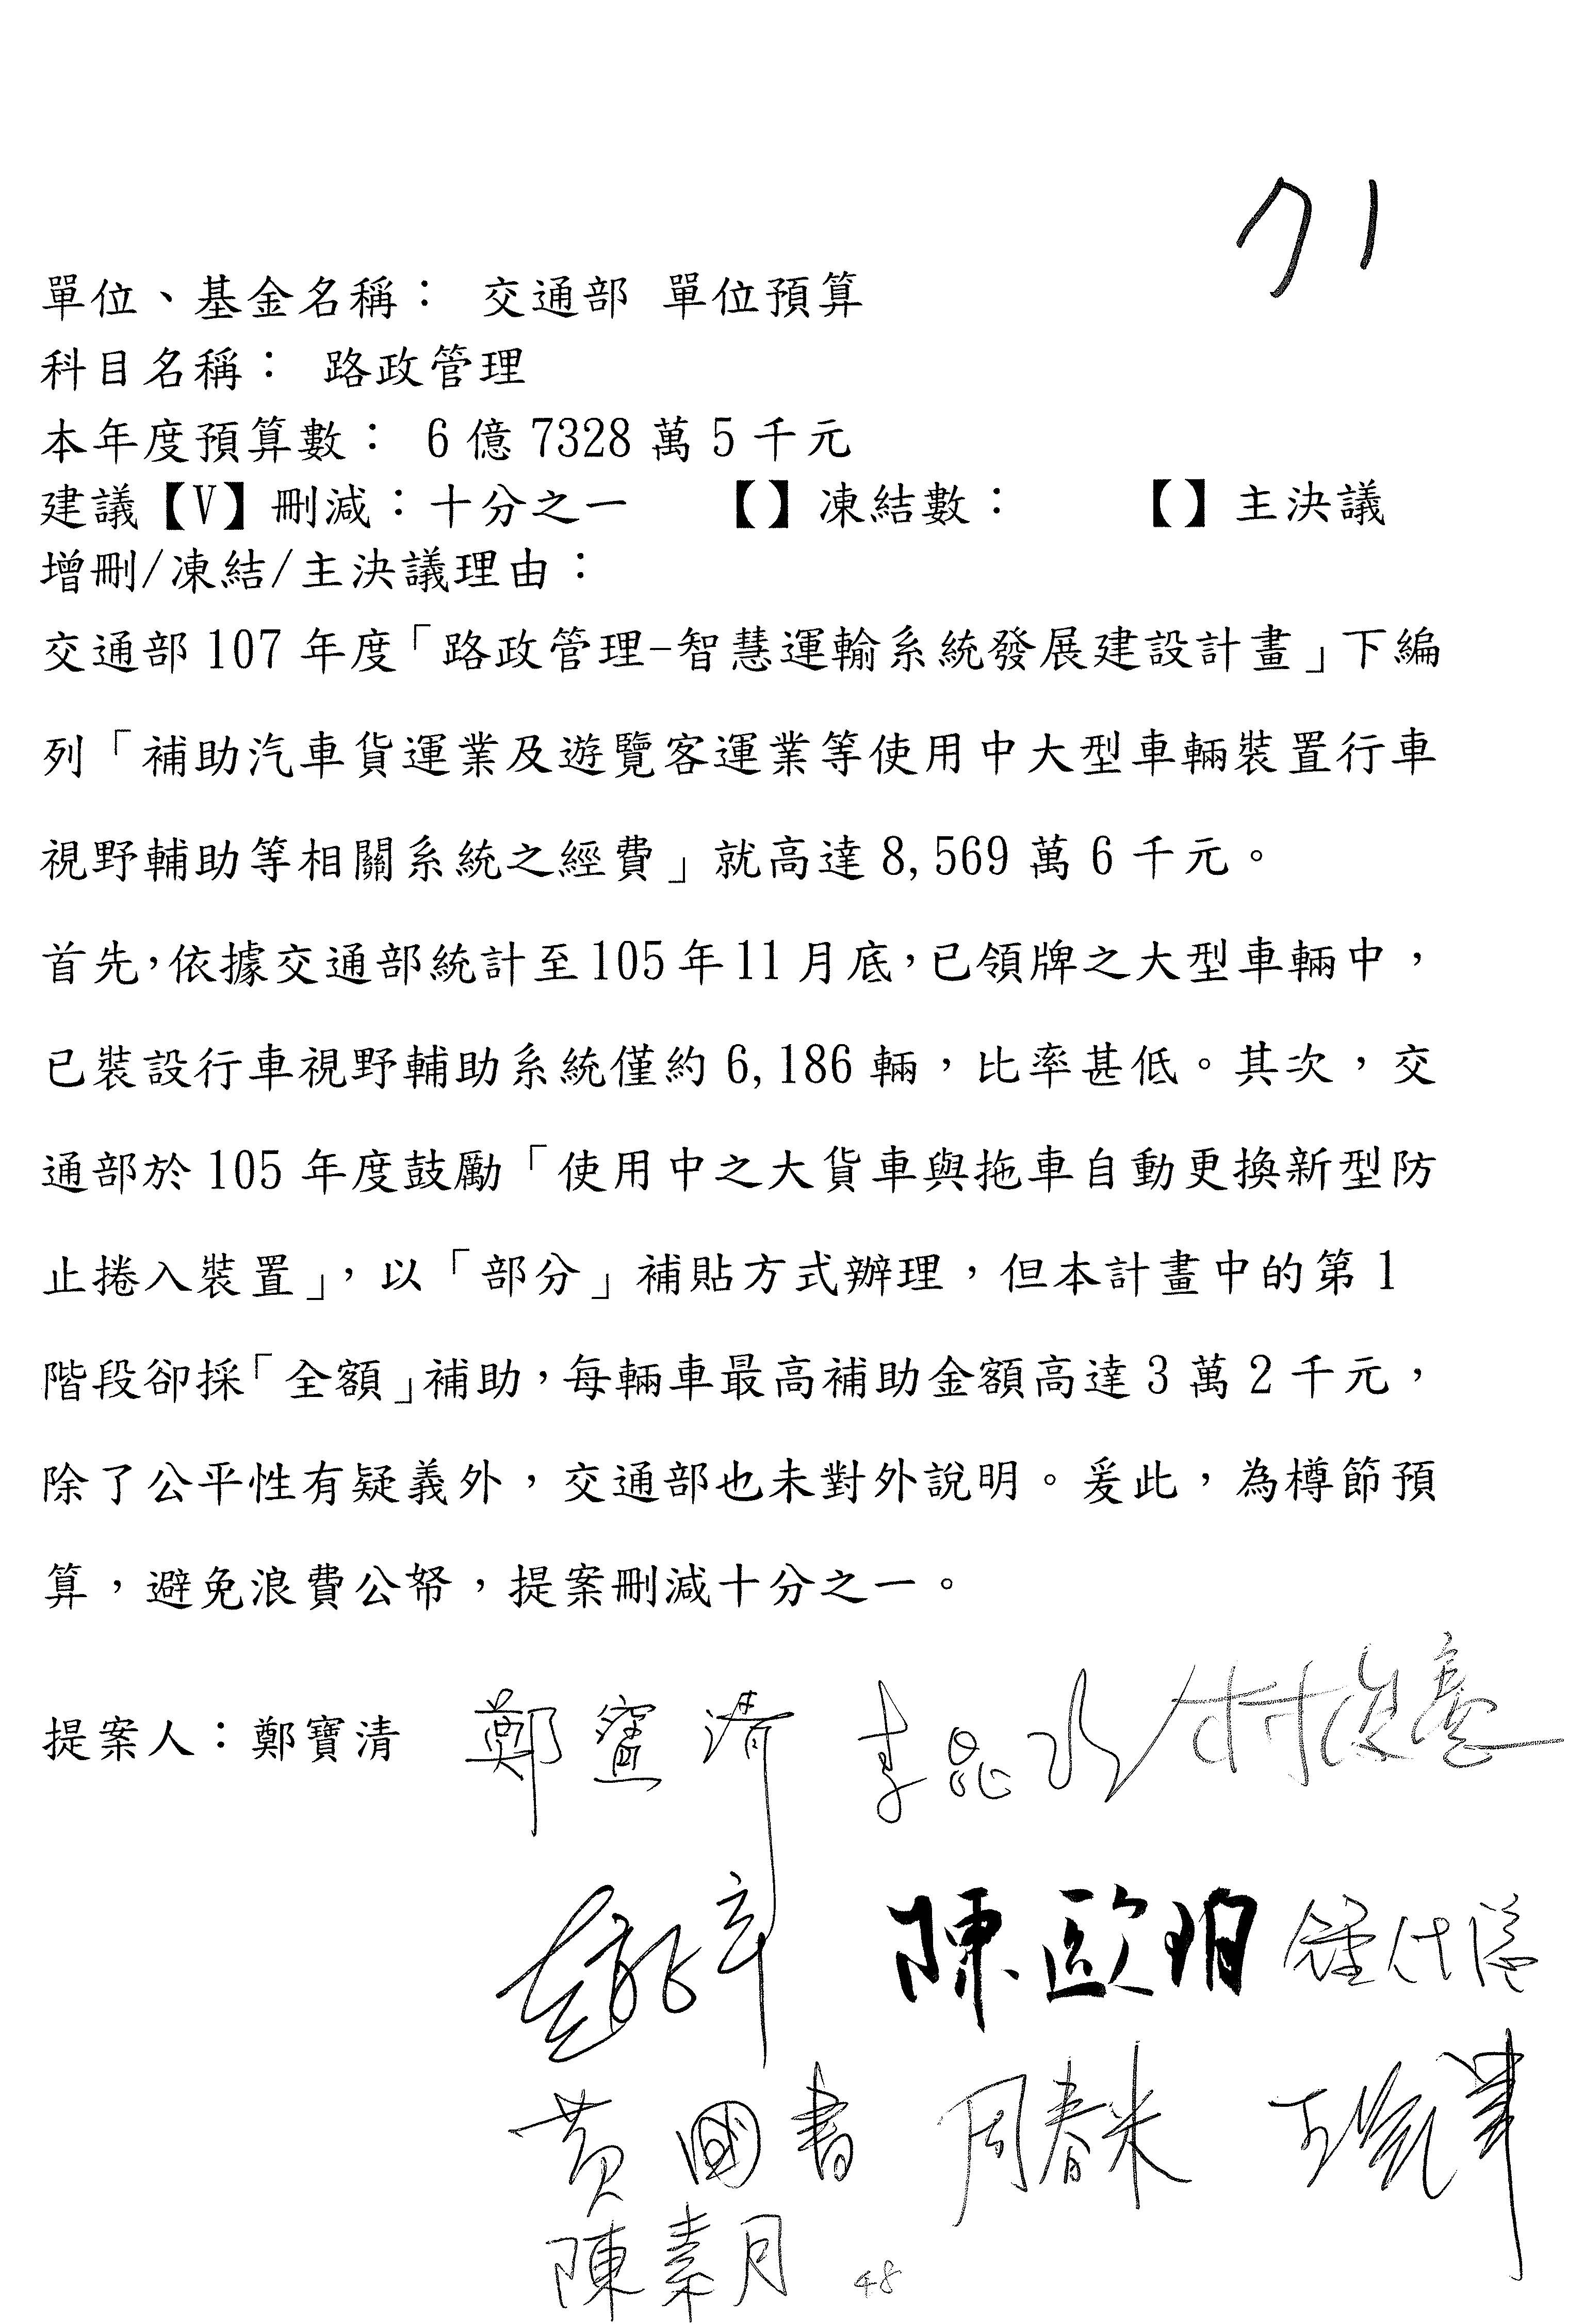 71
單位、基金名稱： 交通部 單位預算
科目名稱： 路政管理
本年度預算數： 6 億 7328 萬 5 千元
建議【V】刪減：十分之一 【】凍結數： 【】主決議
增刪/凍結/主決議理由：
交通部 107 年度「路政管理-智慧運輸系統發展建設計畫」下編
列「補助汽車貨運業及遊覽客運業等使用中大型車輛裝置行車
視野輔助等相關系統之經費」就高達 8,569 萬 6 千元。
首先，依據交通部統計至 105 年 11 月底，已領牌之大型車輛中，
已裝設行車視野輔助系統僅約 6,186 輛，比率甚低。其次，交
通部於 105 年度鼓勵「使用中之大貨車與拖車自動更換新型防
止捲入裝置」，以「部分」補貼方式辦理，但本計畫中的第 1
階段卻採「全額」補助，每輛車最高補助金額高達 3 萬 2 千元，
除了公平性有疑義外，交通部也未對外說明。爰此，為樽節預
算，避免浪費公帑，提案刪減十分之一。
提案人：鄭寶清 鄭寶清 李昆澤 林俊憲
陳歐珀 鍾佳濱
黃國書 周春米
陳素月 48